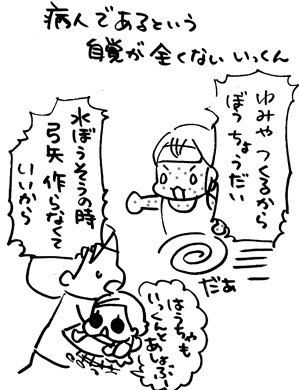 病人であるという
自覚が全くないいっくん
ゆみやつくるから
ぼうちょうだい
水ぼうそうの時
弓矢作らなくて
いいから
だぁ
はうちゃも
いっくんとあしょぶ、